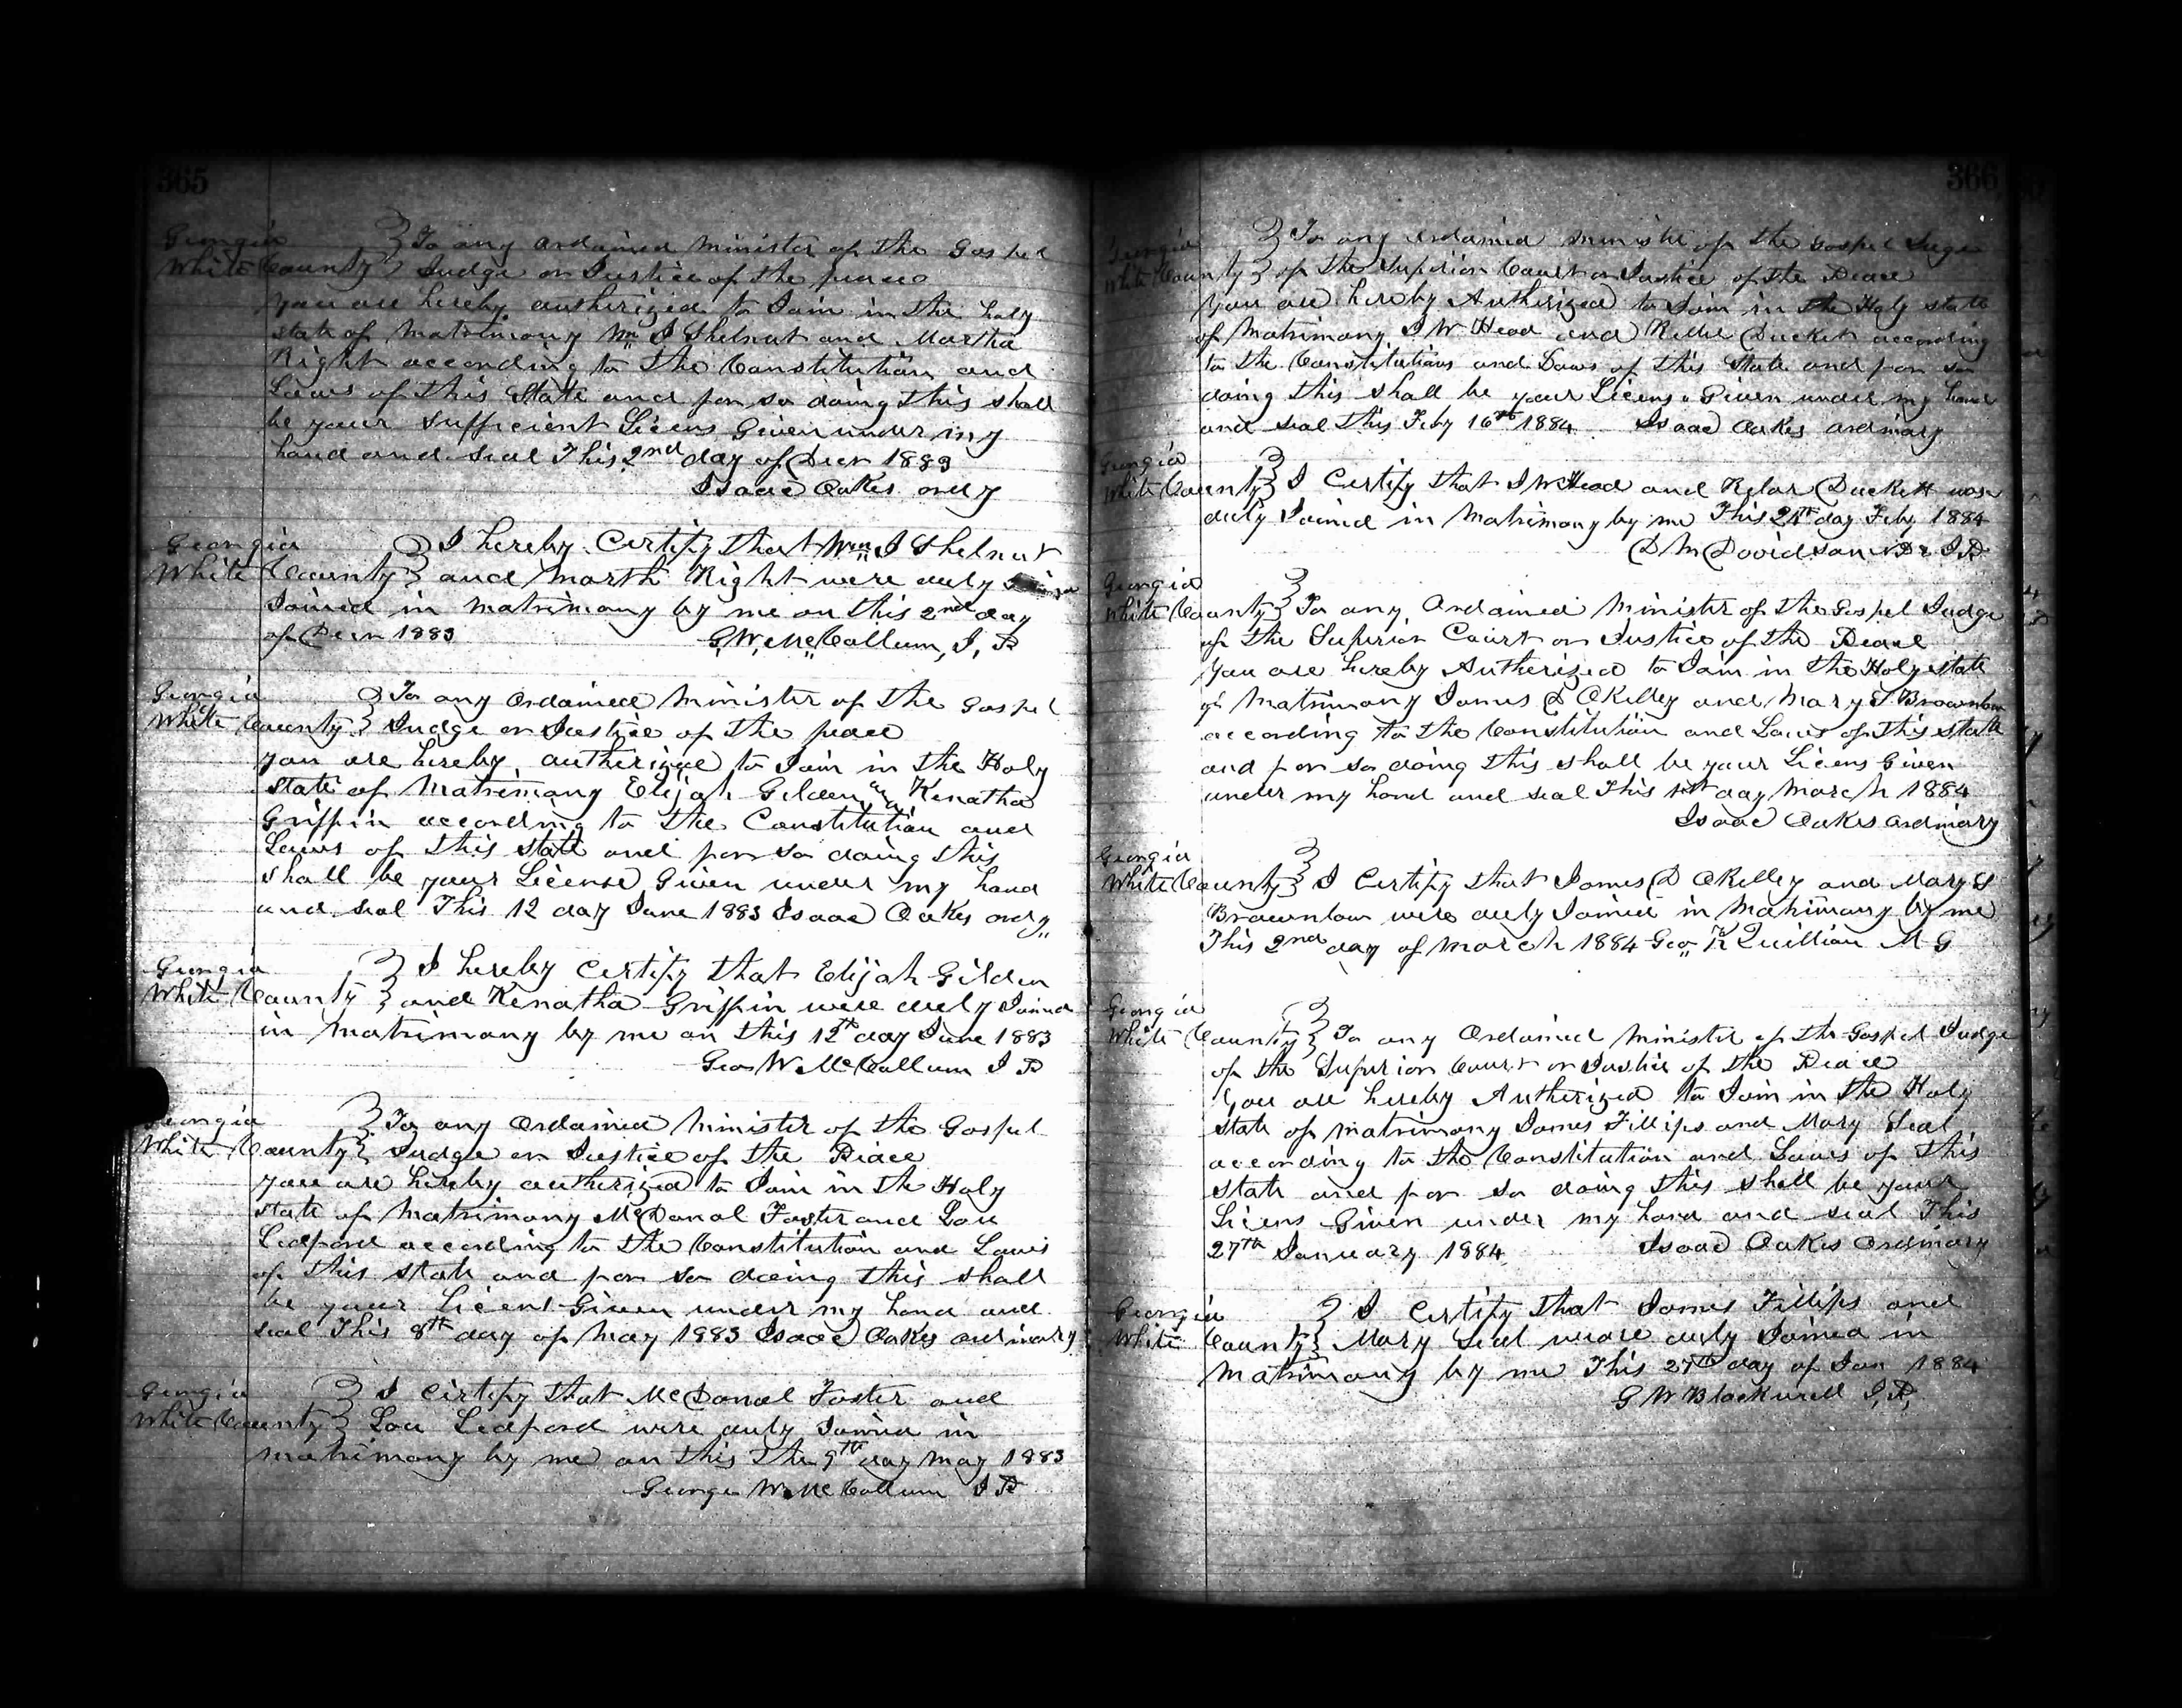 365
Georgia } To any Ordained Minister of the Gospel
White County } Judge or Justice of the peace
you are hereby authorized to Join in the holy
state of Matrimony Wm J Shelnut and Martha
Right according to the Constitution and
Laws of this State and for so doing this shall
be your sufficient Licens Given under my
hand and seal This 2nd day of Decr 1883
Isaac Oakes ordy
Georgia } I hereby Certify that Wm J Shelnut
White County } and Marth Right were duly
Joined in Matrimony by me on this 2nd day
of Decr 1883 G,W, McCollum, J, P
Georgia } To any Ordained Minister of the Gospel
White County } Judge or Justice of the peace
you are hereby authorized to Join in the Holy
State of Matrimony Elijah Gilden and Kenatha
Griffin according to the Constitution and
Laws of this state and for so doing this
shall be your License Given under my hand
and seal This 12 day June 1883 Isaac Oakes ordy
Georgia } I hereby Certify that Elijah Gilden
White County } and Kenatha Griffin were duly Joined
in Matrimony by me on this 12th day June 1883
Geo W McCollum J P
Georgia } To any Ordained Minister of the Gospel
White County } Judge or Justice of the Peace
you are hereby authorized to Join in the Holy
state of Matrimony McDonal Foster and Lou
Ledford according to the Constitution and Laws
of this state and for so doing this shall
be your Licens Given under my hand and
seal This 8th day of May 1883 Isaac Oakes ordinary
Georgia } I Certify that McDonal Foster and
White County } Lou Ledford were duly Joined in
matrimony by me on this the 9th day May 1883
George W McCollum J P
366
Georgia } To any ordained minister of the Gospel Juge
White County } of the Superior Court or Justice of the Peace
you are hereby Authorized to Join in the Holy state
of Matrimony J W Head and Ducket according
to the Constitutions and Laws of this State and for so
doing this shall be your Licens Given under my hand
and seal this Feby 16th 1884 Isaac Oakes ordinary
Georgia
White County } I Certify that J W Head and Duckett was
duly Joined in Matrimony by me This day Feby 1884
D M Davidson J.P.
Georgia
White County } To any Ordained Minister of the Gospel Judge
of the Superior Court or Justice of the Peace
you are hereby Authorized to Join in the Holy state
of Matrimony James D OKelley and Mary S Brownlow
according to the Constitution and Laws of this state
and for so doing this shall be your Licens Given
under my hand and seal This 1st day March 1884
Isaac Oakes Ordinary
Georgia
White County } I Certify that James D OKelley and Mary S
Brownlow were duly Joined in Matrimony by me
This 2nd day of March 1884 Geo K Quillian M G
Georgia
White County } To any Ordained Minister of the Gospel Judge
of the Superior Court or Justice of the Peace
You are hereby Authorized to Join in the Holy
state of matrimony James Fillips and Mary Seal
according to the Constitution and Laws of This
State and for so doing this shall be your
Licens Given under my hand and seal This
27th January 1884 Isaac Oakes Ordinary
Georgia } I Certify that James Fillips and
White County } Mary Seal weare duly Joined in
Matrimony by me This 27th day of Jan 1884
G W Blackwell J,P,